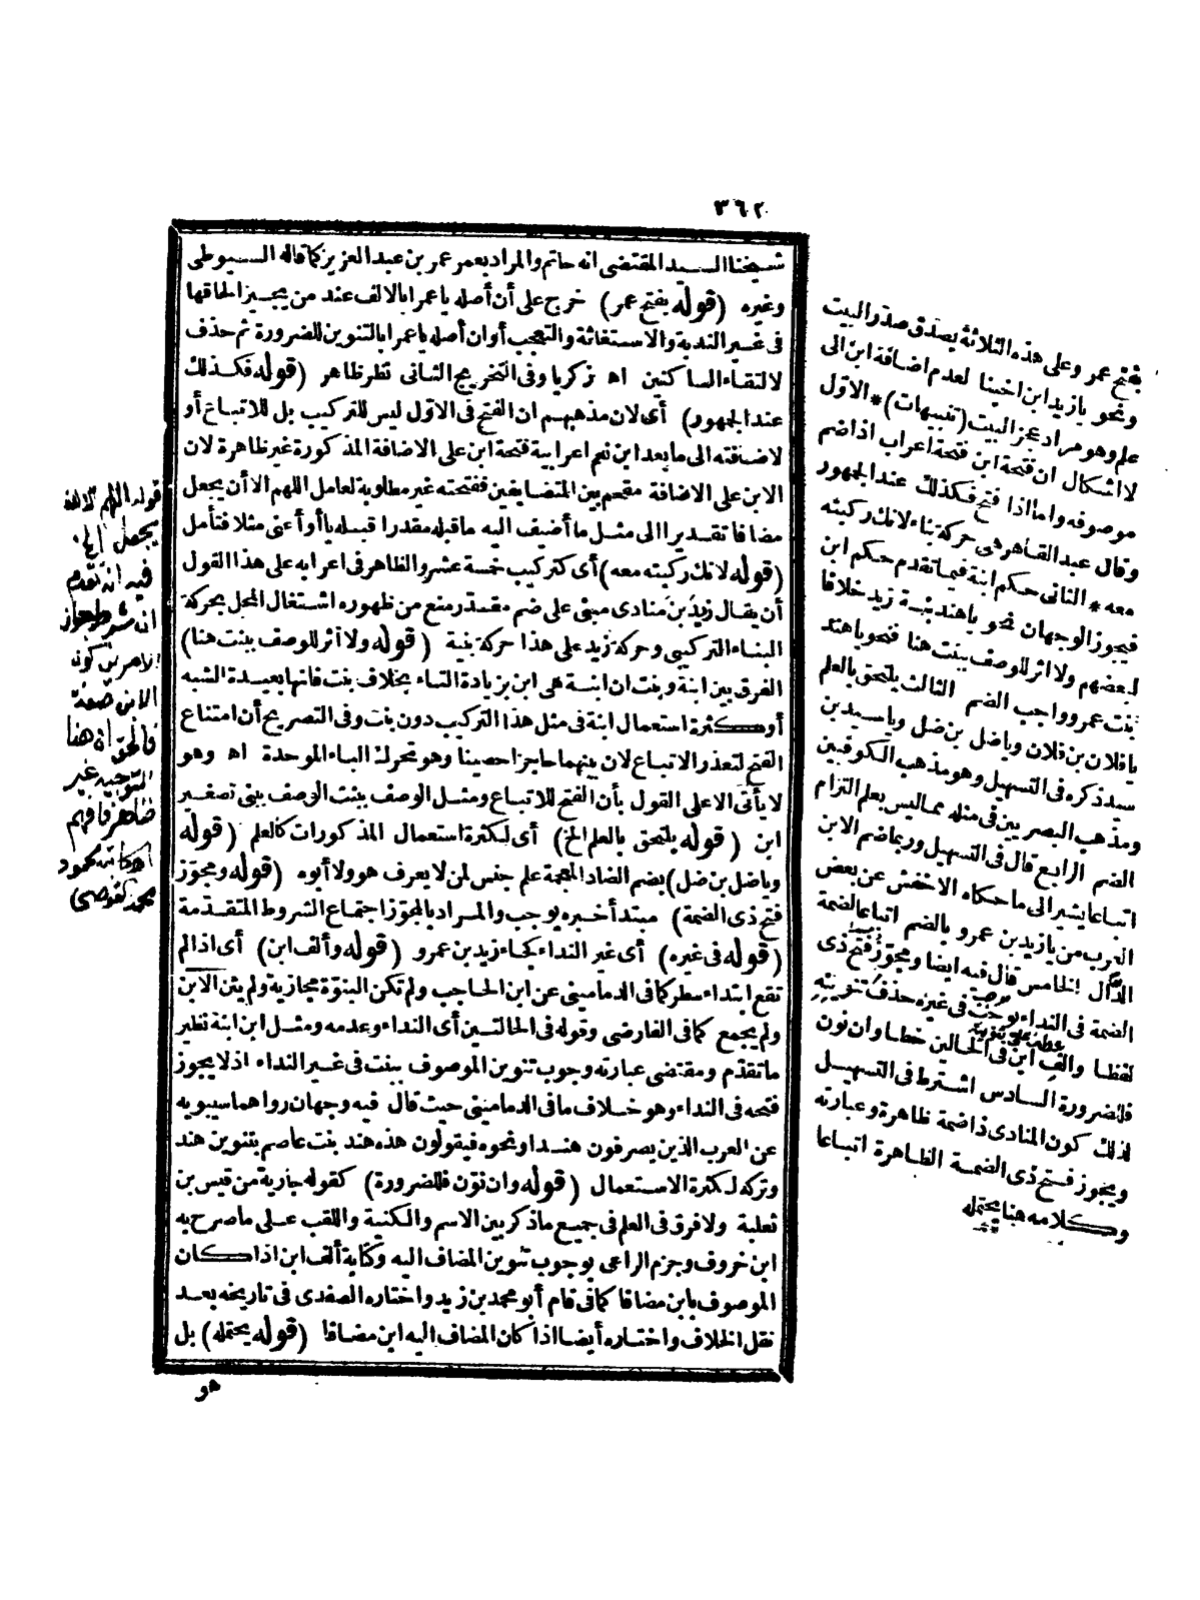 ٣٦٢
شيخنا السيد المقتضى انه حاتم والمراد بعمر عمر بن عبد العزيز كما قاله السيوطى
وغيره (قوله بفتح عمر) خرج على أن أصله يا عمرا بالالف عند من يجيز الحاقها
فى غير الندبة والاستغاثة والتعجب أو ان أصله يا عمرا بالتنوين للضرورة ثم حذف
لالتقاء الساكنين اه زكريا وفى التخريج الثانى نظر ظاهر (قوله فكذلك
عند الجمهور) أى لان مذهبهم ان الفتح فى الاول ليس للتركيب بل للاتباع أو
لاضافته الى ما بعد ابن نعم اعرابية فتحة ابن على الاضافة المذكورة غير ظاهرة لان
الابن على الاضافة مقحم بين المتضايفين ففتحته غير مطلوبة لعامل اللهم الا أن يجعل
مضافا تقديرا الى مثل ما أضيف اليه ما قبله مقدرا قبله يا أو أعنى مثلا فتأمل
(قوله لانك ركبته معه) أى كتركيب خمسة عشر والظاهر فى اعرابه على هذا القول
أن يقال زيد بن منادى مبنى على ضم مقدر منع من ظهوره اشتغال المحل بحركة
البناء التركيبى وحركة زيد على هذا حركة بنية (قوله ولا أثر للوصف ببنت هنا)
الفرق بين ابنة وبنت ان ابنة هى ابن بزيادة التاء بخلاف بنت فانها بعيدة الشبه
أو كثرة استعمال ابنة فى مثل هذا التركيب دون بنت وفى التصريح أن امتناع
الفتح لتعذر الاتباع لان بينهما حاجزا حصينا وهو تحرك الباء الموحدة اه وهو
لا يأتى الا على القول بأن الفتح للاتباع ومثل الوصف ببنت الوصف ببنى تصغير
ابن (قوله يلتحق بالعلم الخ) أى لكثرة استعمال المذكورات كالعلم (قوله
وياضل بن ضل) بضم الضاد المعجمة علم جنس لمن لا يعرف هو ولا أبوه (قوله ومجوّز
فتح ذى الضمة) مبتدأ خبره يوجب والمراد بالمجوّز اجتماع الشروط المتقدمة
(قوله فى غيره) أى غير النداء كجاء زيد بن عمرو (قوله وألف ابن) أى اذا لم
تقع ابتداء سطر كما فى الدمامينى عن ابن الحاجب ولم تكن البنوّة مجازية ولم يثن الابن
ولم يجمع كما فى الفارضى وقوله فى الحالتين أى النداء وعدمه ومثل ابن ابنة نظير
ما تقدّم ومقتضى عبارته وجوب تنوين الموصوف ببنت فى غير النداء اذ لا يجوز
فتحه فى النداء وهو خلاف ما فى الدمامينى حيث قال فيه وجهان رواهما سيبويه
عن العرب الذين يصرفون هندا ونحوه فيقولون هذه هند بنت عاصم بتنوين هند
وتركه لكثرة الاستعمال (قوله وان نوّن فللضرورة) كقوله جارية من قيس بن
ثعلبة ولا فرق فى العلم فى جميع ما ذكر بين الاسم والكنية واللقب على ما صرح به
ابن خروف وجزم الراعى بوجوب تنوين المضاف اليه وكتابة ألف ابن اذا كان
الموصوف بابن مضافا كما فى قام أبو محمد بن زيد واختاره الصفدى فى تاريخه بعد
نقل الخلاف واختاره أيضا اذا كان المضاف اليه ابن مضافا (قوله يحتمله) بل
هو
بفتح عمر وعلى هذه الثلاثة يصدق صدر البيت
ونحو يا زيد ابن اخينا لعدم اضافة ابن الى
علم وهو مراد عجز البيت (تنبيهات)* الاول
لا اشكال ان فتحة ابن فتحة اعراب اذا ضم
موصوفه واما اذا فتح فكذلك عند الجمهور
وقال عبد القاهر هى حركة بناء لانك ركبته
معه* الثانى حكم ابنة فيما تقدم حكم ابن
فيجوز الوجهان نحو يا هند ابنة زيد خلافا
لبعضهم ولا اثر للوصف ببنت هنا فنحو يا هند
بنت عمرو واجب الضم الثالث يلتحق بالعلم
يا فلان بن فلان ويا ضل بن ضل ويا سيد بن
سيد ذكره فى التسهيل وهو مذهب الكوفيين
ومذهب البصريين فى مثله مما ليس بعلم التزام
الضم الرابع قال فى التسهيل وربما ضم الابن
اتباعا يشير الى ما حكاه الاخفش عن بعض
العرب من يا زيد بن عمرو بالضم اتباعا لضمة
الدال الخامس قال فيه ايضا ومجوّز فتح ذى
الضمة فى النداء يوجب فى غيره حذف تنوينه
لفظا والف ابن فى الحالين خطا وان نون
فللضرورة السادس اشترط فى التسهيل
لذلك كون المنادى ذا ضمة ظاهرة وعبارته
ويجوز فتح ذى الضمة الظاهرة اتباعا
وكلامه هنا يحتمله
قوله اللهم الا أن
يجعل الخ
فيه انه تقدم
انه شرط لجواز
الامرين كون
الابن صفة
فالحق ان هنا
التوجيه غير
ظاهر فافهم
اه كاتبه محمود
محمد